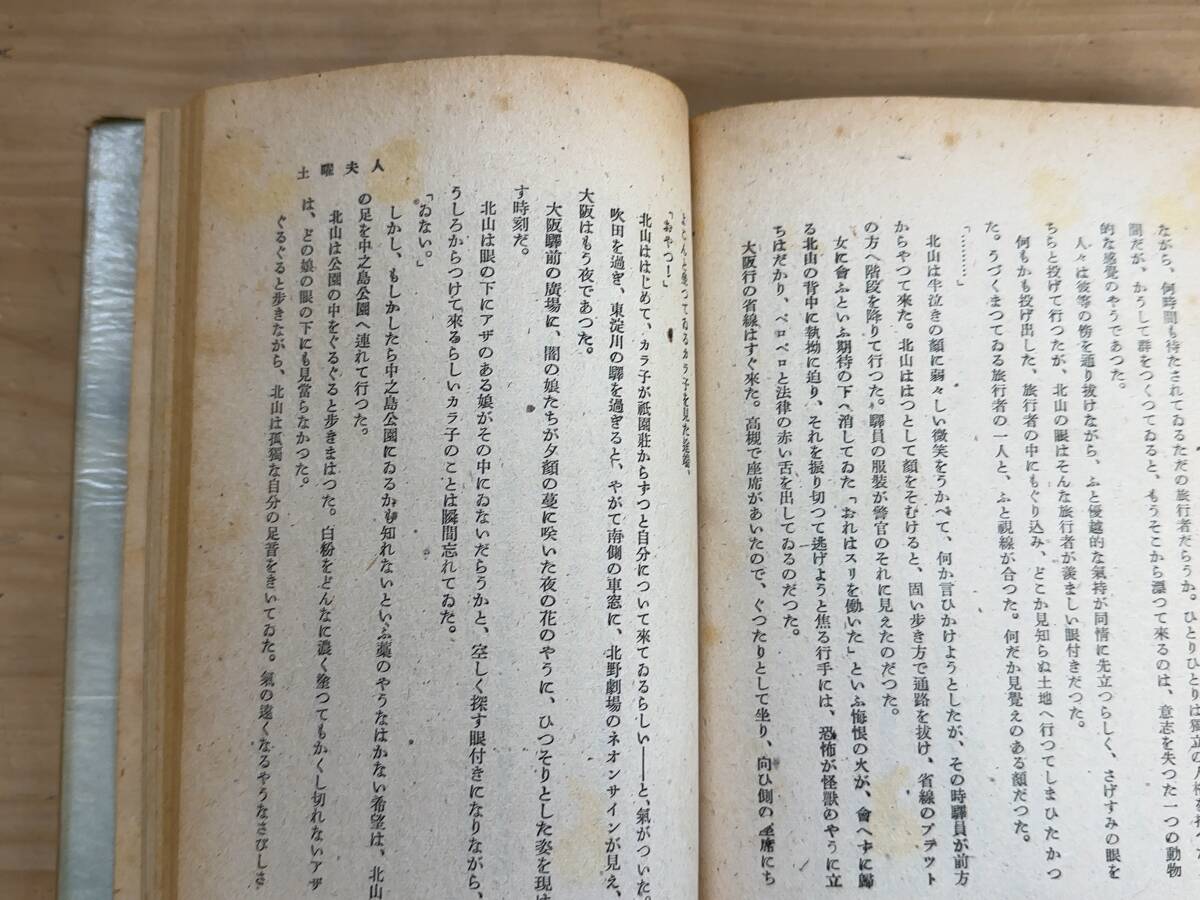 ながら、何時間も待たされてゐるただの旅行者だらうか。ひとりひとりは獨立の人格を持つた
間だが、かうして群をつくつてゐると、もうそこから漂つて來るのは、意志を失つた一つの動物
的な感覺のやうであつた。
人々は彼等の傍を通り拔けながら、ふと優越的な氣持が同情に先立つらしく、さげすみの眼を
ちらと投げて行つたが、北山の眼はそんな旅行者が羨ましい眼付きだつた。
何もかも投げ出した、旅行者の中にもぐり込み、どこか見知らぬ土地へ行つてしまひたかつ
た。うづくまつてゐる旅行者の一人と、ふと視線が合つた。何だか見覺えのある顔だつた。
「………」
北山は半泣きの顔に弱々しい微笑をうかべて、何か言ひかけようとしたが、その時驛員が前方
からやつて來た。北山ははつとして顔をそむけると、固い歩き方で通路を拔け、省線のプラット
の方へ階段を降りて行つた。驛員の服裝が警官のそれに見えたのだつた。
女に會ふといふ期待の下へ消してゐた「おれはスリを働いた」といふ悔恨の火が、會へずに歸
る北山の背中に執拗に迫り、それを振り切つて逃げようと焦る行手には、恐怖が怪獸のやうに立
ちはだかり、ペロペロと法律の赤い舌を出してゐるのだつた。
大阪行の省線はすぐ來た。高槻で座席があいたので、ぐつたりとして坐り、向ひ側の座席にち
よこんと坐つてゐるカラ子を見た途端、
「おやつ！」
北山ははじめて、カラ子が祇園莊からずつと自分について來てゐるらしい――と、氣がついた。
吹田を過ぎ、東淀川の驛を過ぎると、やがて南側の車窓に、北野劇場のネオンサインが見え、
大阪はもう夜であつた。
大阪驛前の廣場に、闇の娘たちが夕顔の蔓に咲いた夜の花のやうに、ひつそりとした姿を現は
す時刻だ。
北山は眼の下にアザのある娘がその中にゐないだらうかと、空しく探す眼付きになりながら、
うしろからつけて來るらしいカラ子のことは瞬間忘れてゐた。
「ゐない。」
しかし、もしかしたら中之島公園にゐるかも知れないといふ藁のやうなはかない希望は、北山
の足を中之島公園へ連れて行つた。
北山は公園の中をぐるぐると歩きまはつた。白粉をどんなに濃く塗つてもかくし切れないアザ
は、どの娘の眼の下にも見當らなかつた。
ぐるぐると歩きながら、北山は孤獨な自分の足音をきいてゐた。氣の遠くなるやうなさびしさ
土曜夫人